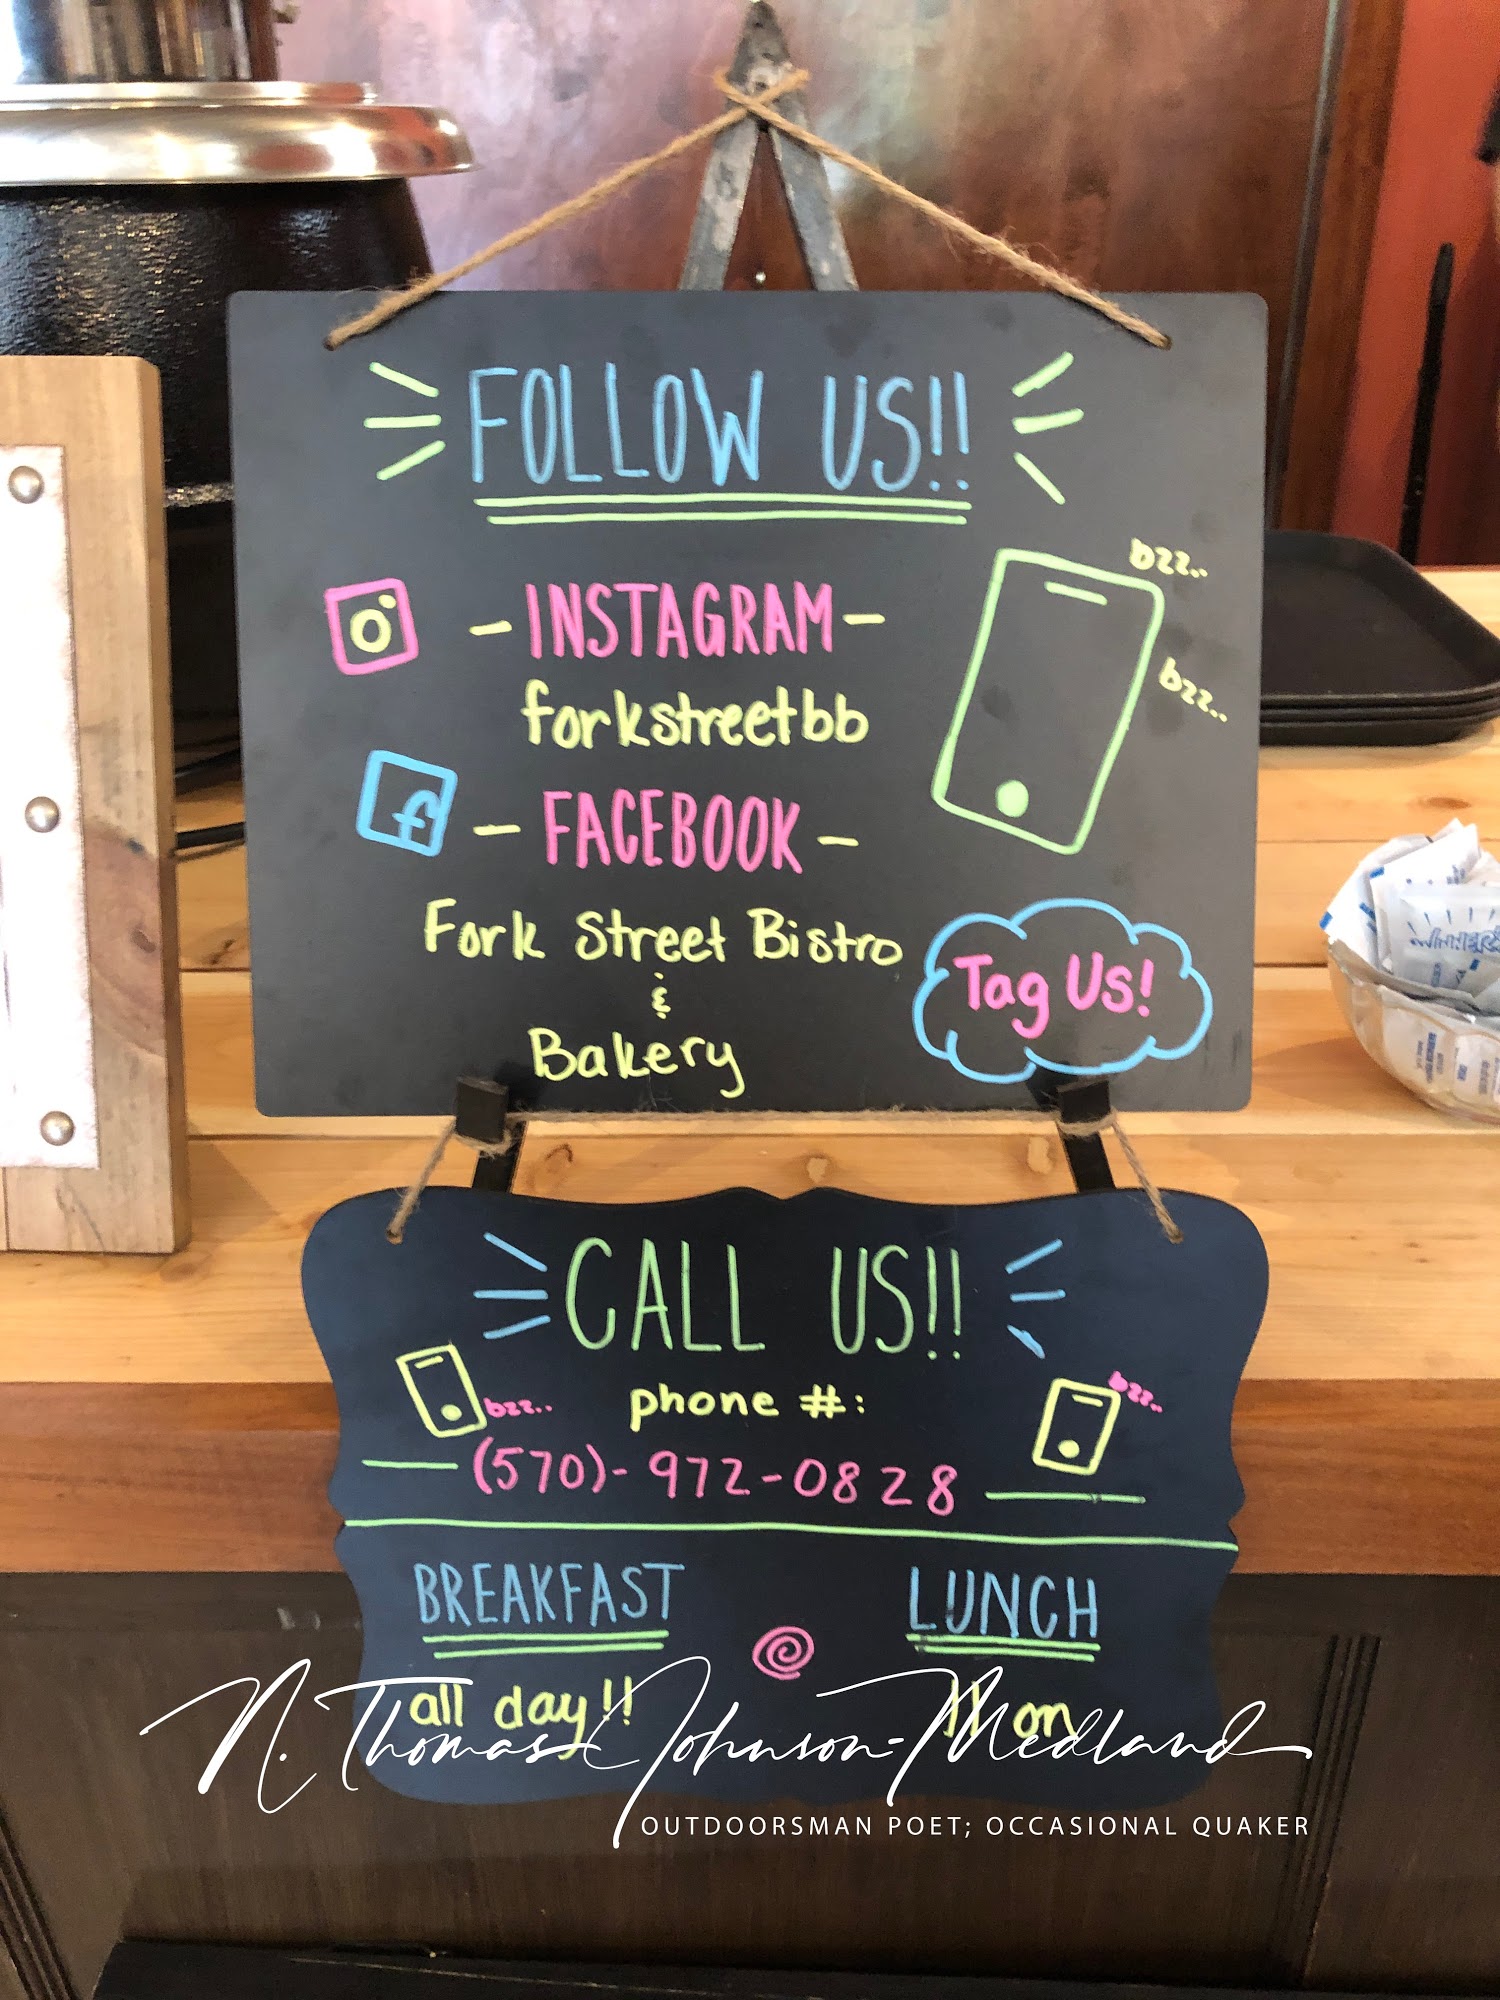 FOLLOW US!!
bzz..
- INSTAGRAM -
forkstreetbb
bzz..
f - FACEBOOK -
Fork Street Bistro
&
Bakery
Tag Us!
WINNER'S
CALL US!!
bzz..
phone #:
bzz..
(570)-972-0828
BREAKFAST
LUNCH
all day!!
11 on
N. Thomas Johnson-Medland
OUTDOORSMAN POET; OCCASIONAL QUAKER